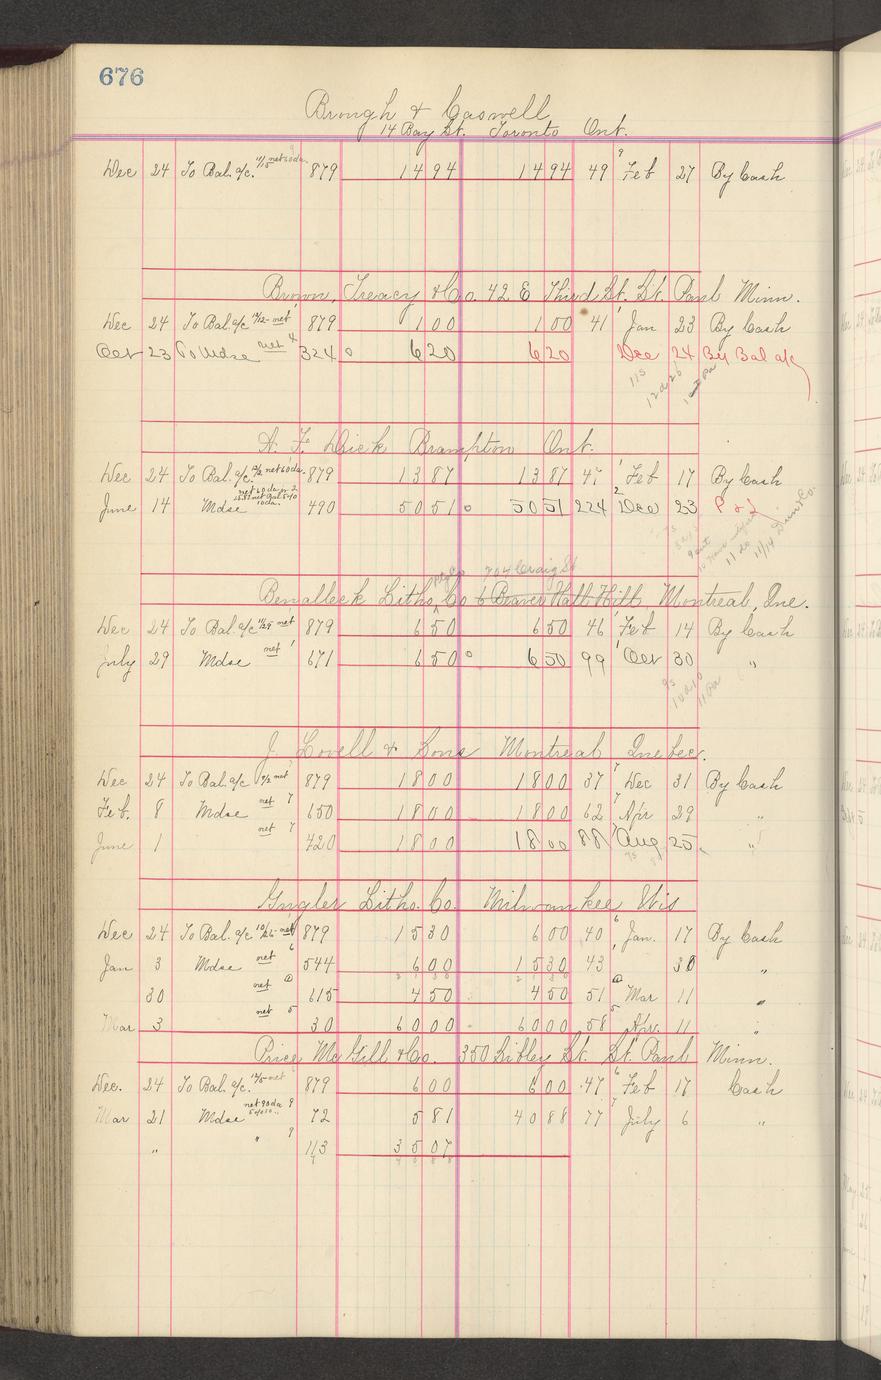 676
Brough & Caswell
14 Bay St. Toronto Ont.
Dec 24 To Bal. a/c. 11/15 net 60 da. 9 879 14 94 14 94 49 9 Feb 27 By Cash
Brown, Treacy & Co. 42 E Third St. St. Paul Minn.
Dec 24 To Bal. a/c 11/12 net 1 879 1 00 1 00 41 1 Jan 23 By Cash
Oct 23 To Mdse net 4 324 0 6 20 6 20 Dec 24 By Bal a/c
A. F. Dick Brampton Ont.
Dec 24 To Bal. a/c. net 60 da. 879 13 87 13 87 47 1 Feb 17 By Cash
June 14 Mdse net 60 da 2 10 da. 490 50 51 0 50 51 224 2 Dec 23 P & L
704 Craig St
Benalleck Litho. Ptg Co 6 Beaver Hall Hill Montreal, Que.
Dec 24 To Bal. a/c 11/29 net 879 6 50 6 50 46 1 Feb 14 By Cash
July 29 Mdse net 1 671 6 50 0 6 50 99 1 Oct 30 "
J. Lovell & Sons Montreal Quebec.
Dec 24 To Bal. a/c 9/2 net 879 18 00 18 00 37 7 Dec 31 By Cash
Feb. 8 Mdse net 7 650 18 00 18 00 62 7 Apr 29 "
June 1 net 7 420 18 00 18 00 88 7 Aug 25 "
Gugler Litho. Co. Milwaukee Wis
Dec 24 To Bal. a/c 10/26 net 879 15 30 6 00 40 6 Jan. 17 By Cash
Jan 3 Mdse net 6 544 6 00 15 30 43 1 30 "
21 30 21 30
30 net 615 4 50 4 50 51 Mar 11 "
Mar 3 net 5 30 60 00 60 00 58 5 Apr. 11 "
Price McGill & Co. 350 Sibley St. St. Paul Minn.
Dec. 24 To Bal. a/c. 12/5 net 879 6 00 6 00 47 6 Feb 17 Cash
Mar 21 Mdse net 90 da 9 72 5 81 40 88 77 7 July 6 "
" " 9 113 35 07
40 88